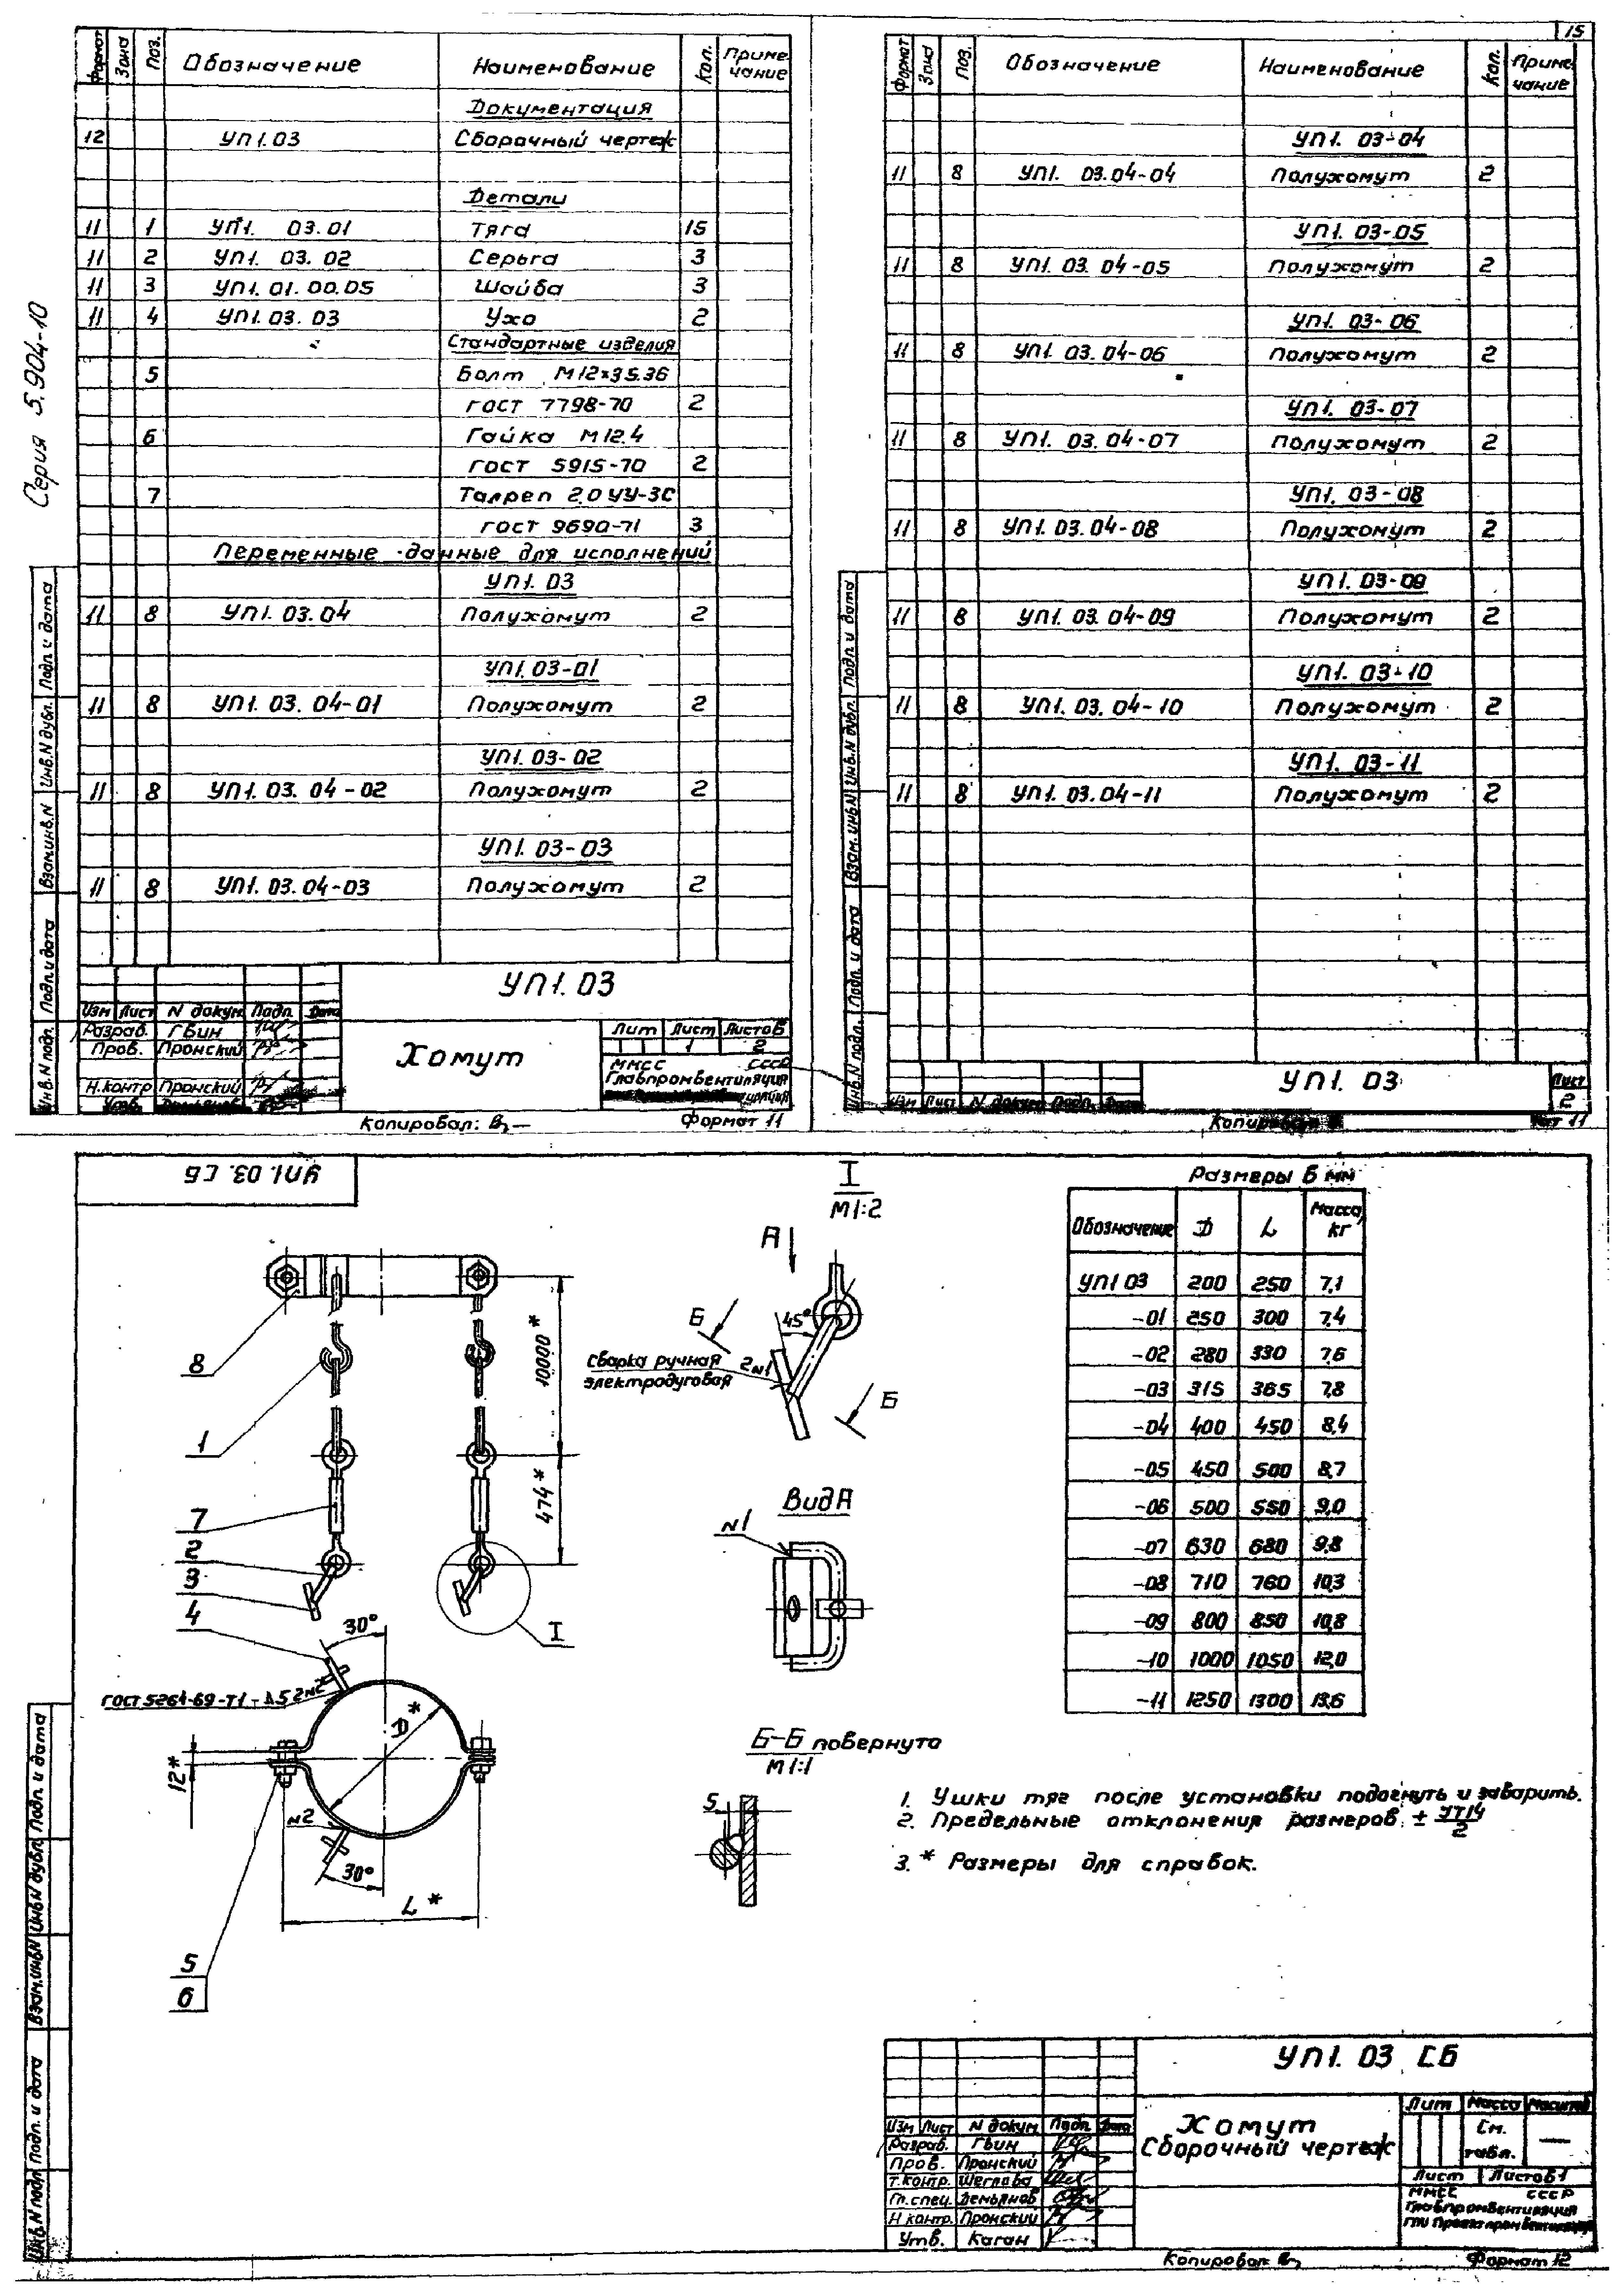 Серия 5.904-10
Формат Зона Поз. Обозначение Наименование Кол. Примечание
Документация
12 УП1.03 Сборочный чертеж
Детали
11 1 УП1. 03.01 Тяга 15
11 2 УП1. 03.02 Серьга 3
11 3 УП1.01.00.05 Шайба 3
11 4 УП1.03.03 Ухо 2
Стандартные изделия
5 Болт М12×35.36
ГОСТ 7798-70 2
6 Гайка М12.4
ГОСТ 5915-70 2
7 Талреп 2.0 УУ-3С
ГОСТ 9690-71 3
Переменные данные для исполнений
УП1.03
11 8 УП1.03.04 Полухомут 2
УП1.03-01
11 8 УП1.03.04-01 Полухомут 2
УП1.03-02
11 8 УП1.03.04-02 Полухомут 2
УП1.03-03
11 8 УП1.03.04-03 Полухомут 2
Инв.N подл. Подп. и дата Взам.инв.N Инв.N дубл. Подп. и дата
УП1.03
Изм Лист N докум. Подп. Дата
Разраб. Гвин
Пров. Пронский
Н.контр Пронский
Утв.
Хомут
Лит Лист Листов
1 2
ММСС СССР
Главпромвентиляция
Копировал: Формат 11
15
Формат Зона Поз. Обозначение Наименование Кол. Примечание
УП1. 03-04
11 8 УП1. 03.04-04 Полухомут 2
УП1. 03-05
11 8 УП1. 03.04-05 Полухомут 2
УП1. 03-06
11 8 УП1. 03.04-06 Полухомут 2
УП1. 03-07
11 8 УП1. 03.04-07 Полухомут 2
УП1. 03-08
11 8 УП1.03.04-08 Полухомут 2
УП1. 03-09
11 8 УП1. 03.04-09 Полухомут 2
УП1. 03-10
11 8 УП1. 03.04-10 Полухомут 2
УП1. 03-11
11 8 УП1. 03.04-11 Полухомут 2
Инв.N подл. Подп. и дата Взам.инв.N Инв.N дубл. Подп. и дата
Изм Лист N докум Подп. Дата
УП1. 03
Лист
2
Копировал 11
УП1.03.СБ
8
1
7
2
3
4
10000*
474*
I
30°
ГОСТ 5264-69-Т1-△5 2 N2
D*
12*
N2
30°
L*
5
6
I
М1:2
А
Б
45°
Сварка ручная электродуговая
2 N1
Б
Вид А
N1
Б-Б повернуто
М1:1
5
Размеры в мм
Обозначение D L Масса, кг
УП1 03 200 250 7,1
-01 250 300 7,4
-02 280 330 7,6
-03 315 365 7,8
-04 400 450 8,4
-05 450 500 8,7
-06 500 550 9,0
-07 630 680 9,8
-08 710 760 10,3
-09 800 850 10,8
-10 1000 1050 12,0
-11 1250 1300 13,6
1. Ушки тяг после установки подогнуть и заварить.
2. Предельные отклонения размеров ± УТ14/2
3. * Размеры для справок.
Инв.N подл. Подп. и дата Взам.инв.N Инв.N дубл. Подп. и дата
УП1. 03 СБ
Изм Лист N докум. Подп. Дата
Разраб. Гвин
Пров. Пронский
Т.контр. Щеглова
Гл.спец. Демьянов
Н контр. Пронский
Утв. Каган
Хомут
Сборочный чертеж
Лит Масса Масштаб
См. табл. —
Лист Листов 1
ММСС СССР
Главпромвентиляция
ГПИ Проектпромвентиляция
Копировал Формат 12